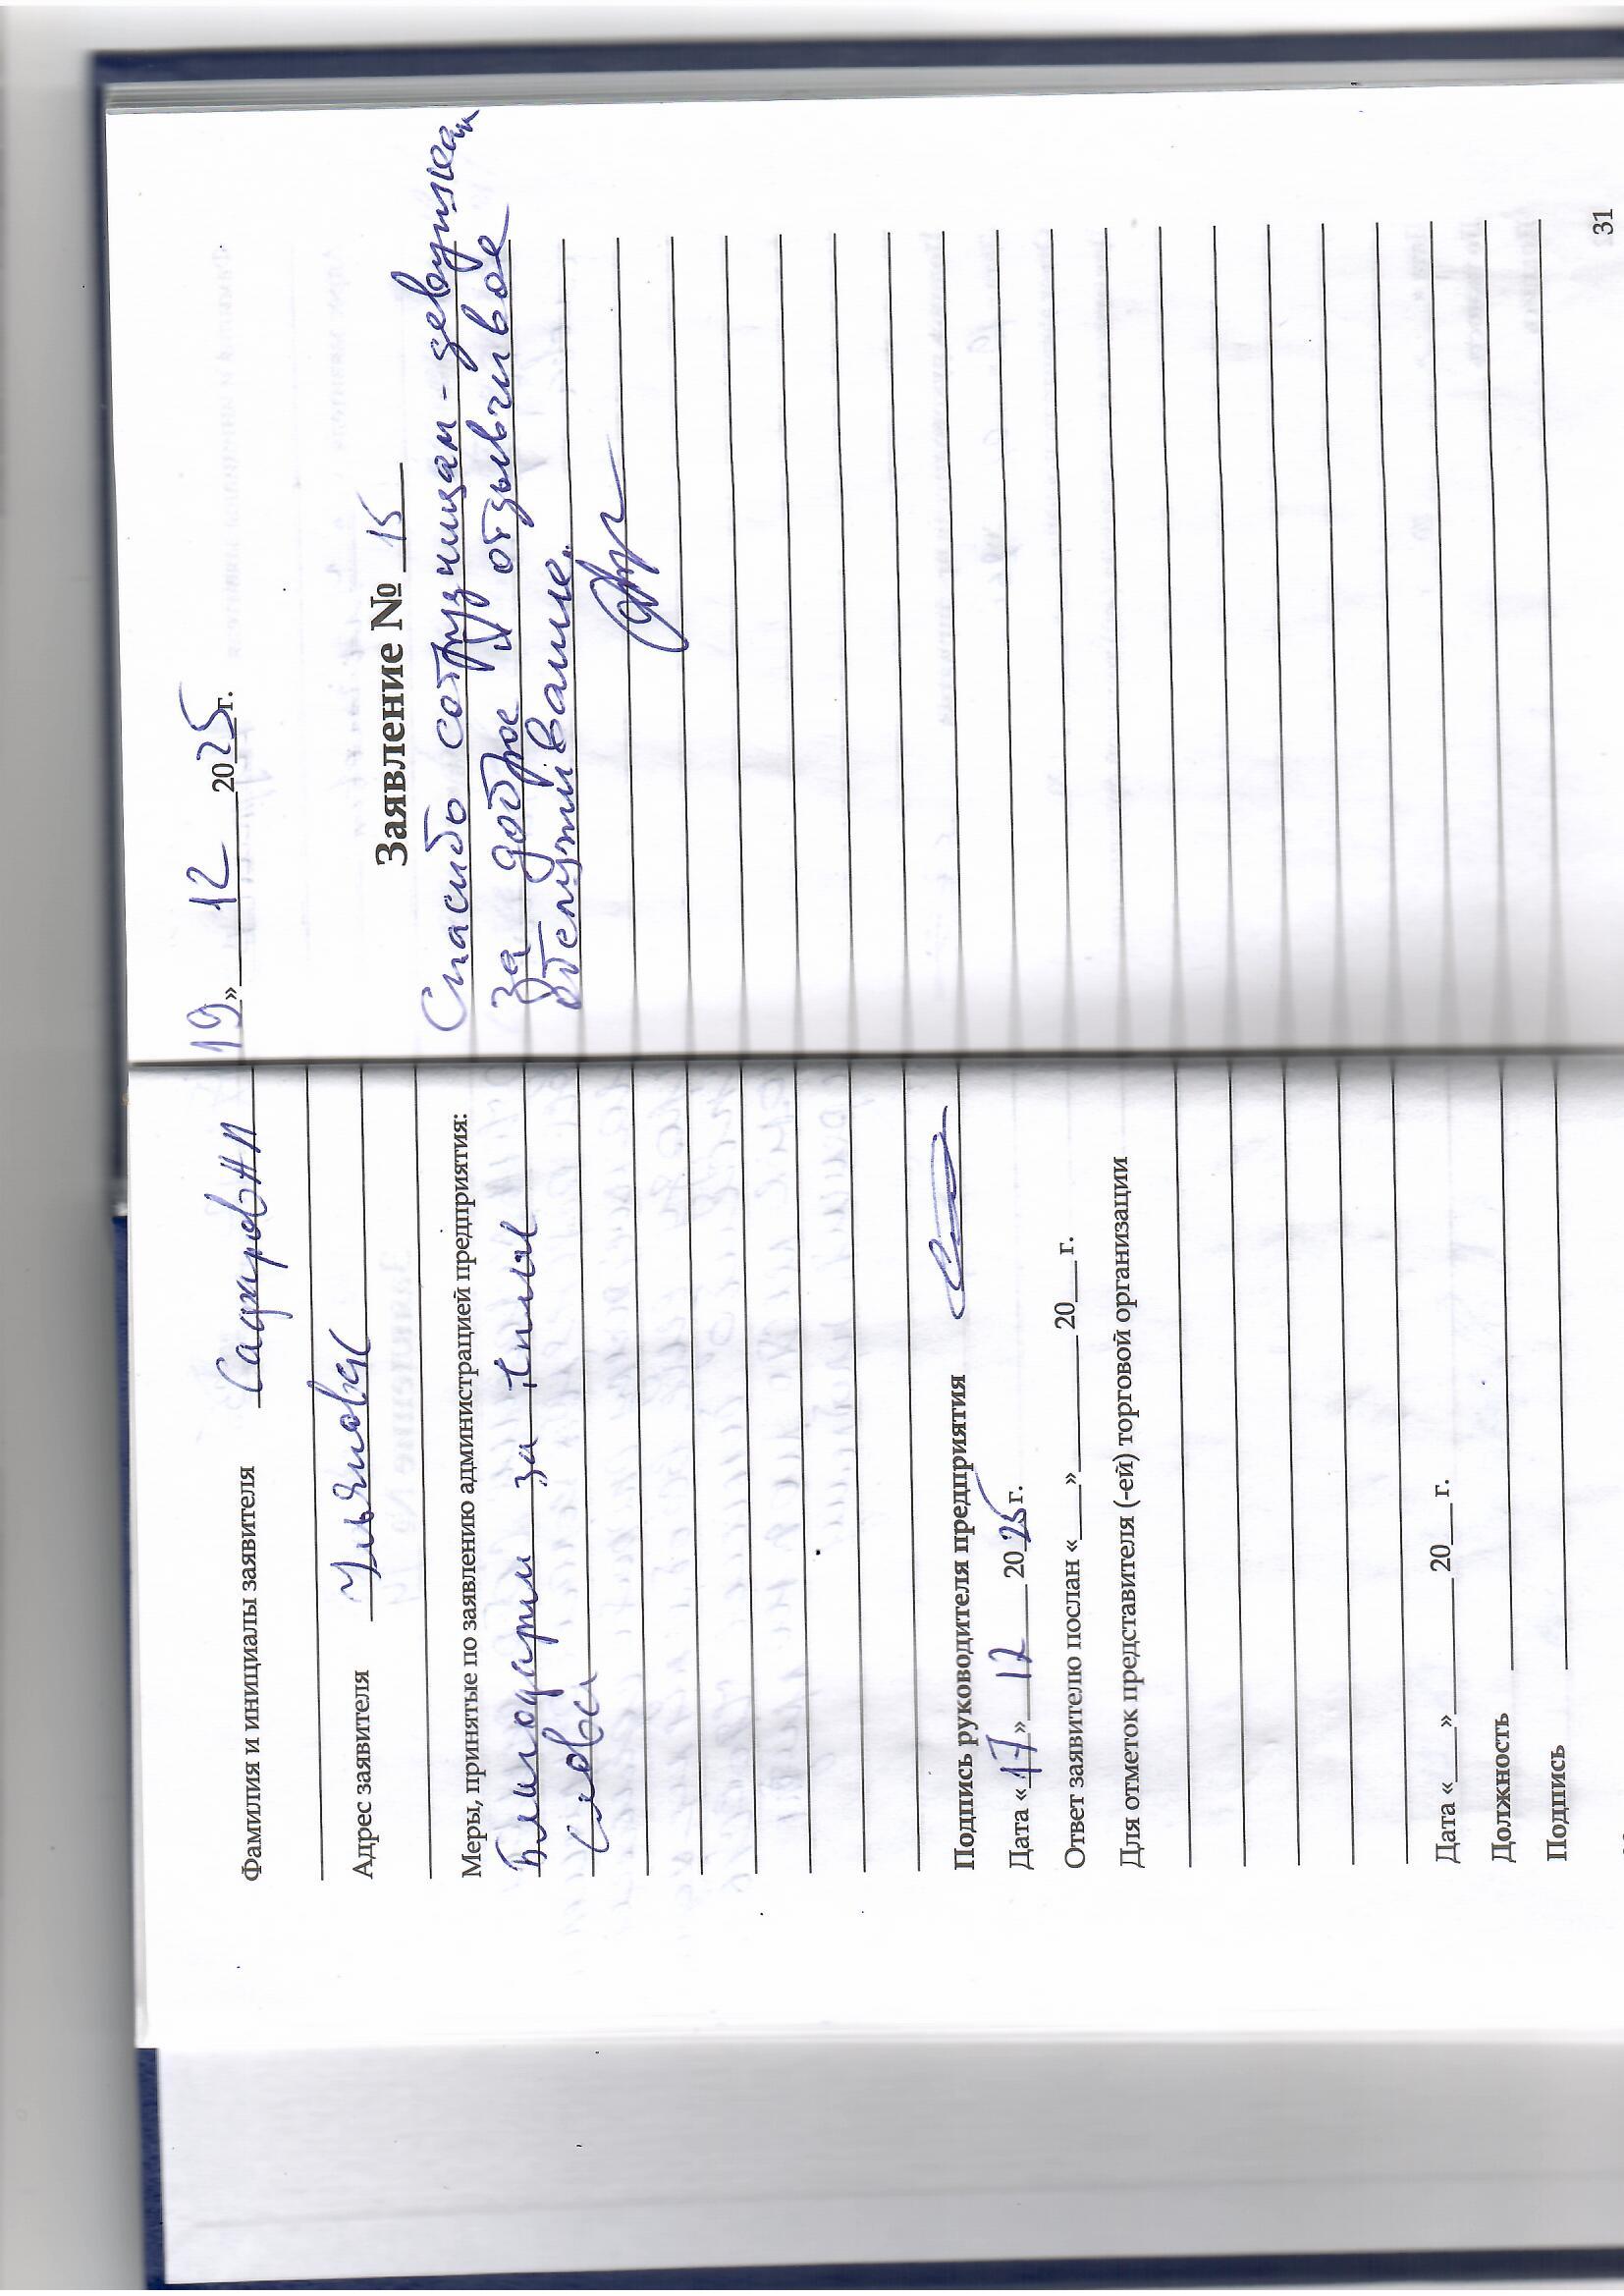 Фамилия и инициалы заявителя Сафаров НП
Адрес заявителя Ульяновск
Меры, принятые по заявлению администрацией предприятия:
Благодарим за тёплые
слова
Подпись руководителя предприятия
Дата «17» 12 2025 г.
Ответ заявителю послан «___» 20__ г.
Для отметок представителя (-ей) торговой организации
Дата «___» 20__ г.
Должность
Подпись
19» 12 2025 г.
Заявление № 15
Спасибо сотрудницам - девушкам
за доброе и отзывчивое
обслуживание.
31